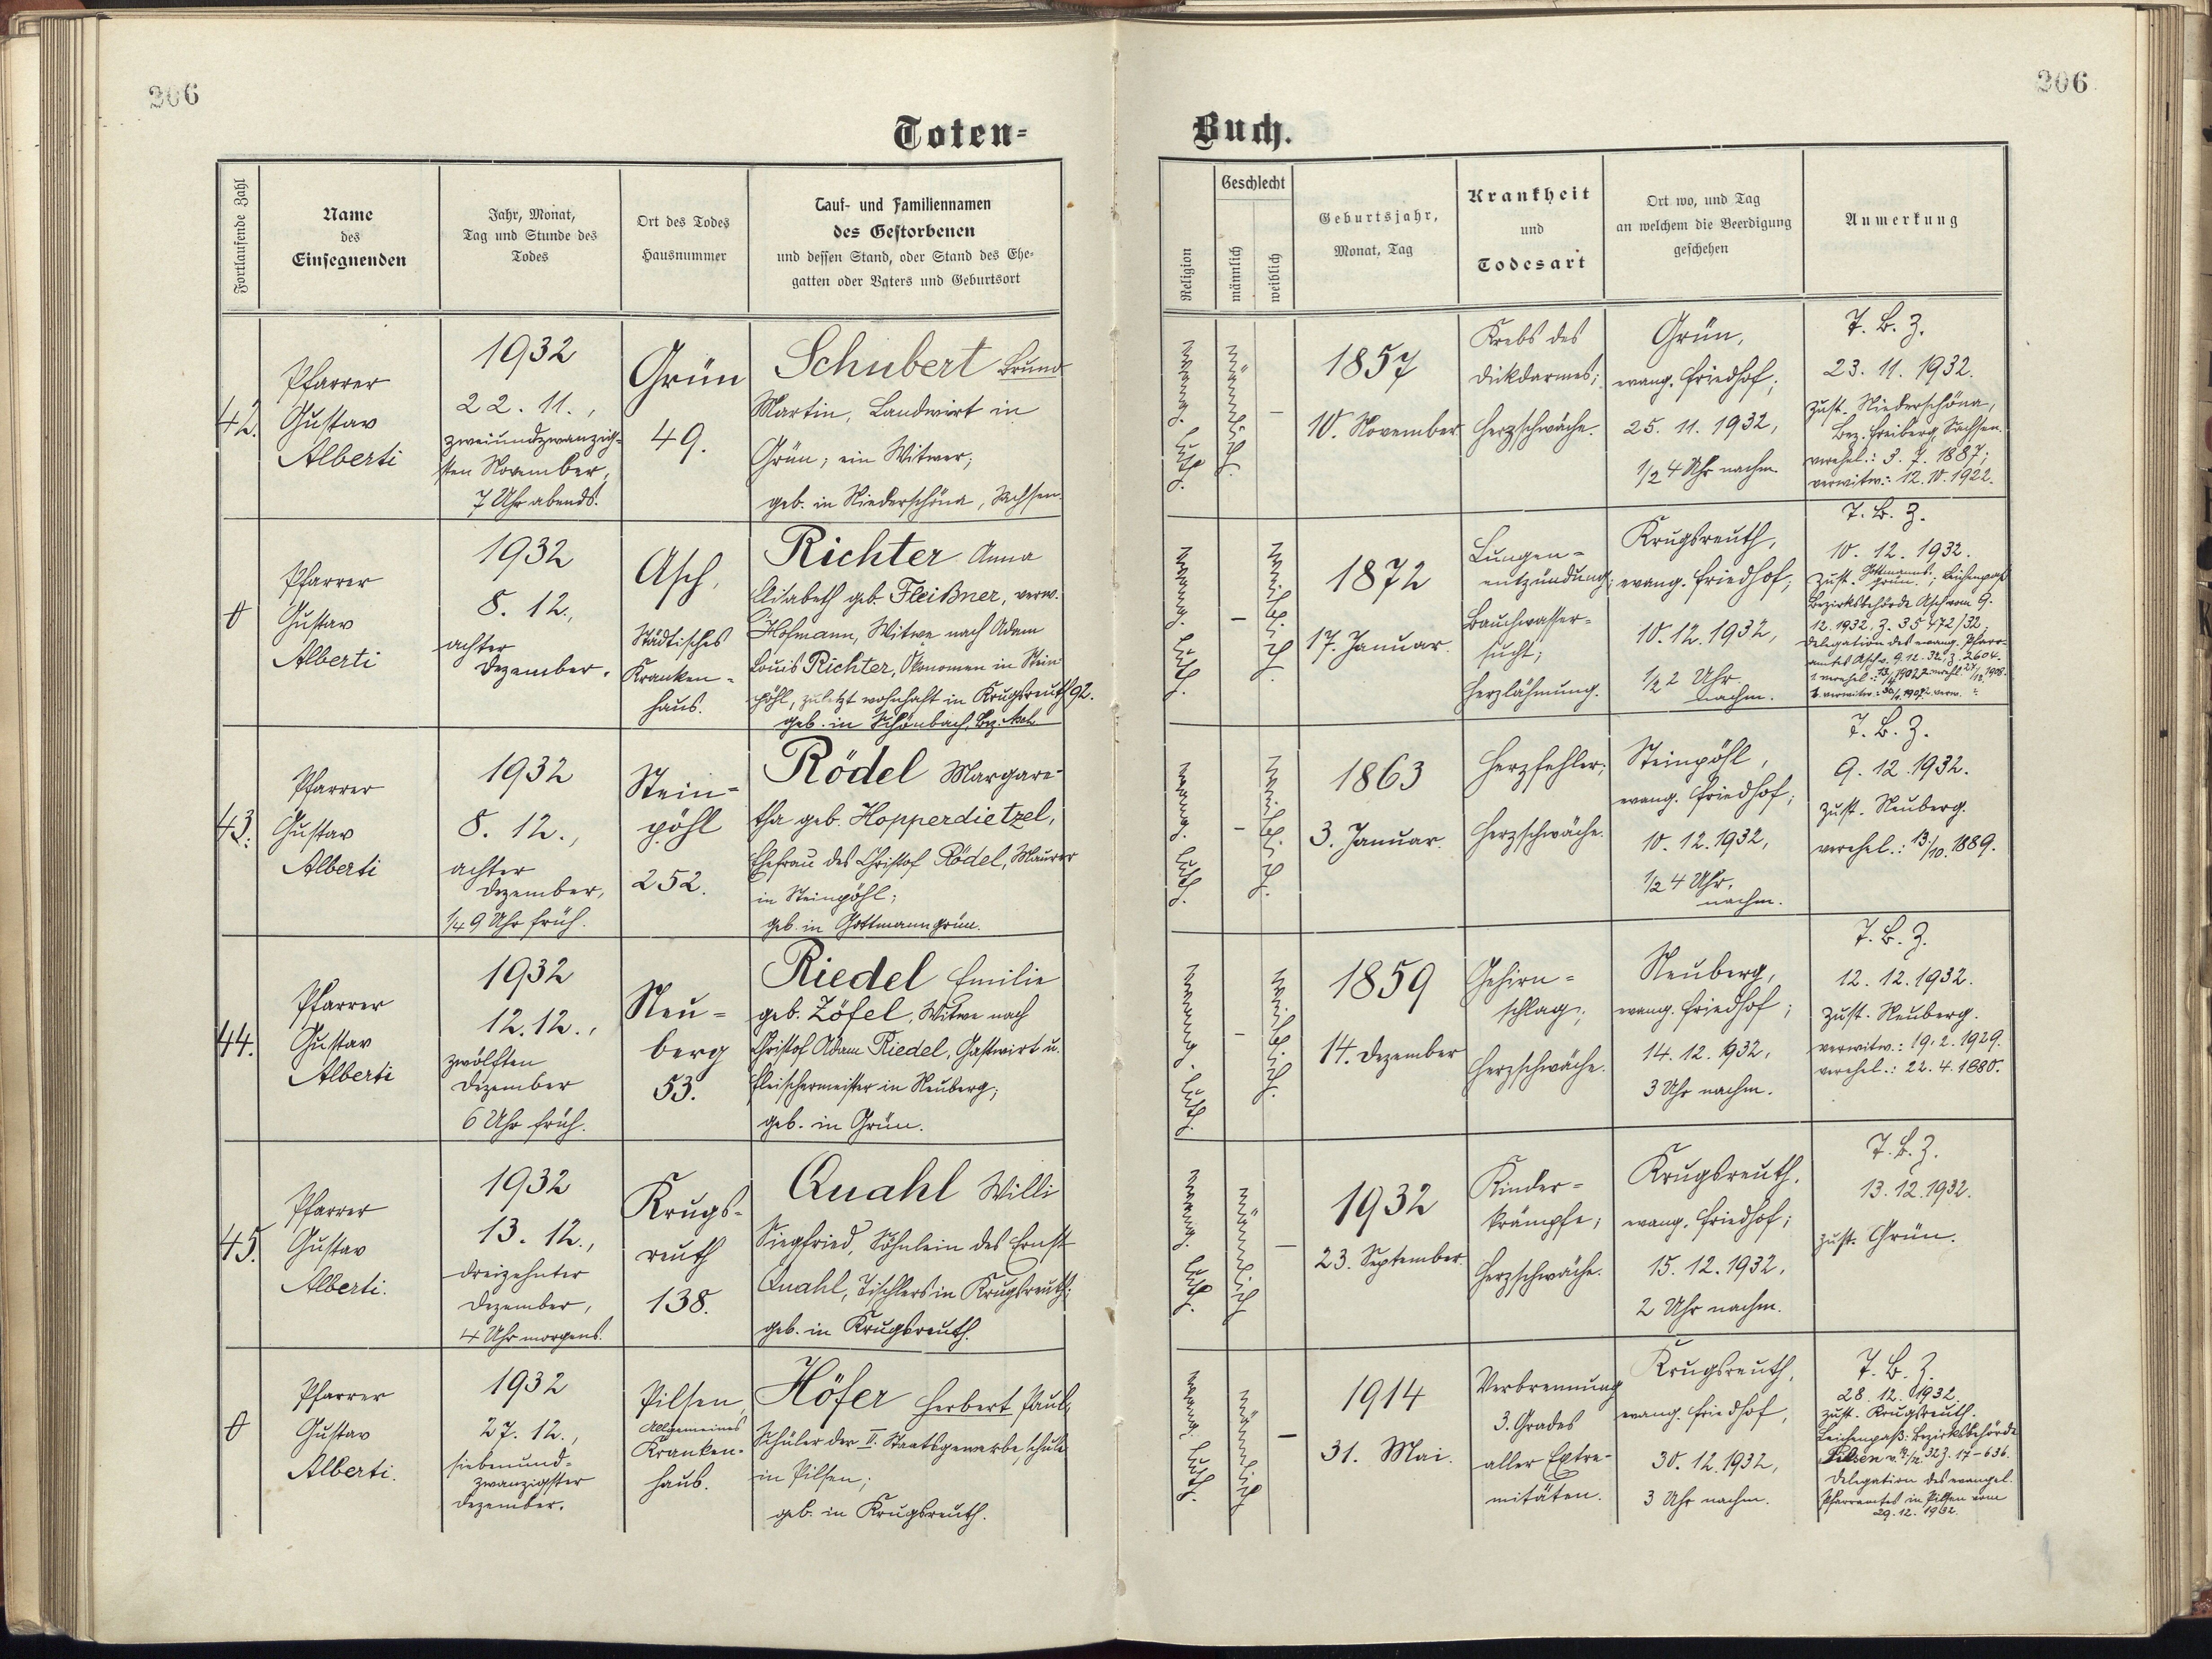 206
206
Toten-
Buch.
Fortlaufende Zahl
Name
des
Einsegnenden
Jahr, Monat,
Tag und Stunde des
Todes
Ort des Todes
Hausnummer
Tauf- und Familiennamen
des Gestorbenen
und dessen Stand, oder Stand des Ehe-
gatten oder Vaters und Geburtsort
Religion
Geschlecht
männlich
weiblich
Geburtsjahr,
Monat, Tag
Krankheit
und
Todesart
Ort wo, und Tag
an welchem die Beerdigung
geschehen
Anmerkung
42.
Pfarrer
Gustav
Alberti
1932
22. 11.,
zweiundzwanzig-
sten November,
7 Uhr abends.
Grün
49.
Schubert Bruno
Martin, Landwirt in
Grün; ein Witwer;
geb. in Niederschöna, Sachsen.
evang. luth.
männlich.
–
1857
10. November.
Krebs des
Dickdarmes;
Herzschwäche.
Grün,
evang. Friedhof;
25. 11. 1932,
1/2 4 Uhr nachm.
T. B. Z.
23. 11. 1932.
zust. Niederschöna,
Bez. Freiberg, Sachsen.
verehel.: 3. 7. 1887;
verwitw.: 12. 10. 1922.
Pfarrer
Gustav
Alberti
1932
8. 12.,
achter
Dezember.
Asch,
Städtisches
Kranken-
haus.
Richter Anna
Elisabeth geb. Fleißner, verw.
Hofmann, Witwe nach Adam
Louis Richter, Ökonomen in Stein-
pöhl, zuletzt wohnhaft in Krugsreuth 92.
geb. in Schönbach, Bez. Asch
evang. luth.
–
weiblich.
1872
17. Januar.
Lungen-
entzündung;
Bauchwasser-
sucht;
Herzlähmung.
Krugsreuth,
evang. Friedhof;
10. 12. 1932,
1/2 2 Uhr
nachm.
T. B. Z.
10. 12. 1932.
zust. Gottmanns-
grün.; Leichenpaß
Bezirksbehörde Asch vom 9.
12. 1932, Z. 35472/32.
Delegation des evang. Pfarr-
amtes Asch v. 9. 12. 32, Z. 2604.
43.
Pfarrer
Gustav
Alberti
1932
8. 12.,
achter
Dezember,
1/4 9 Uhr früh.
Stein-
pöhl
252.
Rödel Margare-
tha geb. Hopperdietzel,
Ehefrau des Christof Rödel, Maurer
in Steinpöhl;
geb. in Gottmannsgrün.
evang. luth.
–
weiblich.
1863
3. Januar.
Herzfehler;
Herzschwäche.
Steinpöhl,
evang. Friedhof;
10. 12. 1932,
1/2 4 Uhr,
nachm.
T. B. Z.
9. 12. 1932.
zust. Neuberg.
verehel.: 13./10. 1889.
44.
Pfarrer
Gustav
Alberti
1932
12. 12.,
zwölften
Dezember
6 Uhr früh.
Neu-
berg
53.
Riedel Emilie
geb. Zöfel, Witwe nach
Christof Adam Riedel, Gastwirt u.
Fleischermeister in Neuberg;
geb. in Grün.
evang. luth.
–
weiblich.
1859
14. Dezember
Gehirn-
schlag;
Herzschwäche.
Neuberg,
evang. Friedhof;
14. 12. 1932,
3 Uhr nachm.
T. B. Z.
12. 12. 1932.
zust. Neuberg.
verwitw.: 19. 2. 1929.
verehel.: 22. 4. 1880.
45.
Pfarrer
Gustav
Alberti.
1932
13. 12.,
dreizehnter
Dezember,
4 Uhr morgens.
Krugs-
reuth
138.
Quahl Willi
Siegfried, Söhnlein des Ernst
Quahl, Tischlers in Krugsreuth;
geb. in Krugsreuth.
evang. luth.
männlich
–
1932
23. September.
Kinder-
krämpfe;
Herzschwäche.
Krugsreuth,
evang. Friedhof;
15. 12. 1932,
2 Uhr nachm.
T. B. Z.
13. 12. 1932.
zust. Grün.
Pfarrer
Gustav
Alberti.
1932
27. 12.,
siebenund-
zwanzigster
Dezember.
Pilsen,
Allgemeines
Kranken-
haus.
Höfer Herbert Paul,
Schüler der II. Staatsgewerbeschule
in Pilsen;
geb. in Krugsreuth.
evang. luth.
männlich
–
1914
31. Mai.
Verbrennung
3. Grades
aller Extre-
mitäten.
Krugsreuth,
evang. Friedhof,
30. 12. 1932,
3 Uhr nachm.
T. B. Z.
28. 12. 1932.
zust. Krugsreuth.
Leichenpaß: Bezirksbehörde
Pilsen
Delegation des evangel.
Pfarramtes in Pilsen vom
29. 12. 1932.